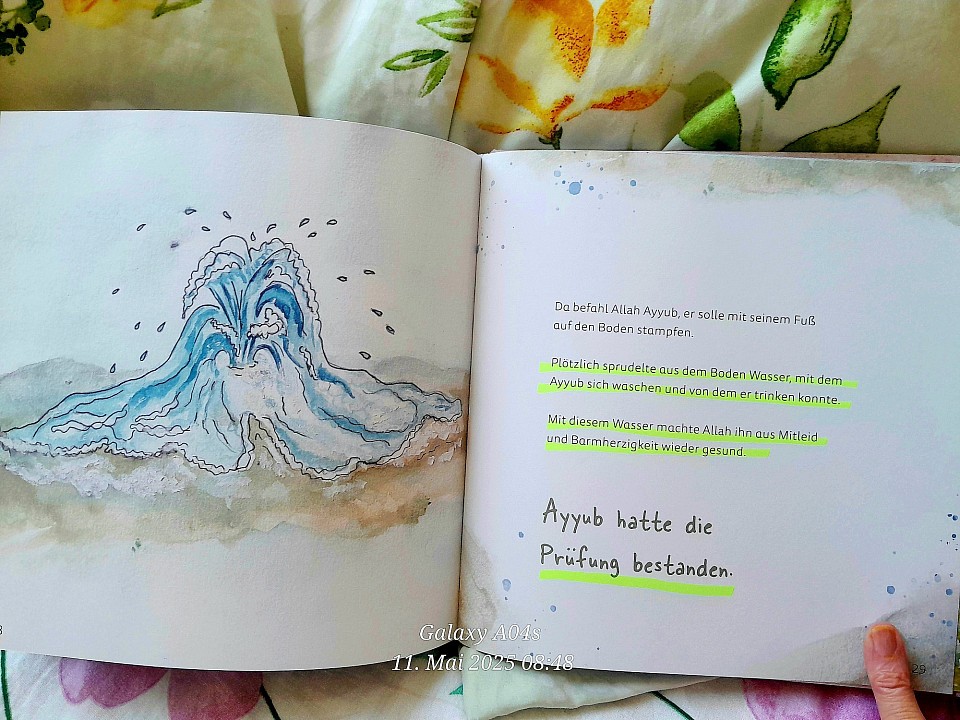 Da befahl Allah Ayyub, er solle mit seinem Fuß
auf den Boden stampfen.
Plötzlich sprudelte aus dem Boden Wasser, mit dem
Ayyub sich waschen und von dem er trinken konnte.
Mit diesem Wasser machte Allah ihn aus Mitleid
und Barmherzigkeit wieder gesund.
Ayyub hatte die
Prüfung bestanden.
25
Galaxy A04s
11. Mai 2025 08:48